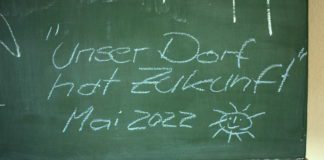 "Unser Dorf
hat Zukunft"
Mai 2022